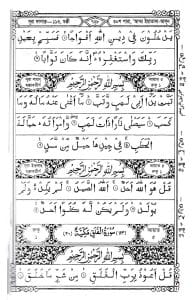 يَدْخُلُونَ فِيْ دِيْنِ اللّٰهِ اَفْوَاجًا ۙ فَسَبِّحْ بِحَمْدِ
رَبِّكَ وَاسْتَغْفِرْهُ ؕ اِنَّهٗ كَانَ تَوَّابًا
بِسْمِ اللّٰهِ الرَّحْمٰنِ الرَّحِيْمِ
تَبَّتْ يَدَآ اَبِيْ لَهَبٍ وَّتَبَّ مَآ اَغْنٰى عَنْهُ مَالُهٗ وَمَا
كَسَبَ سَيَصْلٰى نَارًا ذَاتَ لَهَبٍ وَّامْرَاَتُهٗ حَمَّالَةَ
الْحَطَبِ فِيْ جِيْدِهَا حَبْلٌ مِّنْ مَّسَدٍ
بِسْمِ اللّٰهِ الرَّحْمٰنِ الرَّحِيْمِ
قُلْ هُوَ اللّٰهُ اَحَدٌ اَللّٰهُ الصَّمَدُ لَمْ يَلِدْ وَلَمْ
يُوْلَدْ وَلَمْ يَكُنْ لَّهٗ كُفُوًا اَحَدٌ
سُوْرَةُ الْفَلَقِ مَكِّيَّةٌ
بِسْمِ اللّٰهِ الرَّحْمٰنِ الرَّحِيْمِ
قُلْ اَعُوْذُ بِرَبِّ الْفَلَقِ مِنْ شَرِّ مَا خَلَقَ